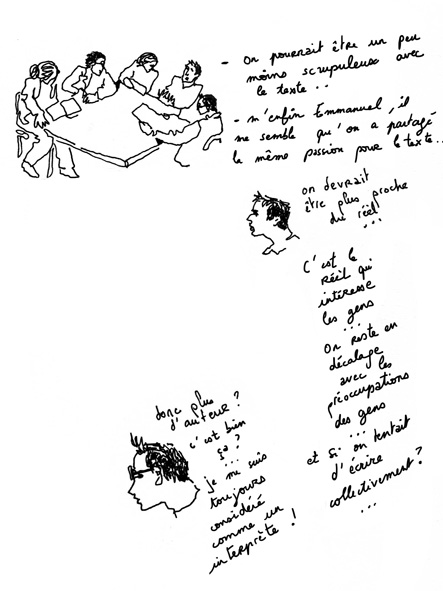 - on pourrait être un peu
moins scrupuleux avec
le texte...
- m'enfin Emmanuel, il
me semble qu'on a partagé
la même passion pour le texte...
on devrait
être plus proche
du réel
...
C'est le
réel qui
intéresse
les gens
...
on reste en
décalage
avec les
préoccupations
des gens
...
et si on tentait
d'écrire
collectivement?
...
donc plus
d'auteur?
c'est bien
ça?
...
je me suis
toujours
considéré
comme un
interprète!